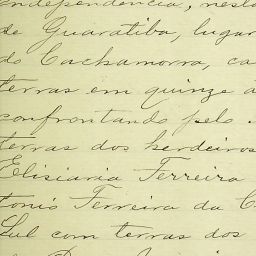 independencia, nest
de Guaratiba, lugar
do Cachamorra, ca
terras em quinze d
confrontando pelo
terras dos herdeiros
Elisiaria Ferreira
tonio Ferreira da C
Sul com terras dos